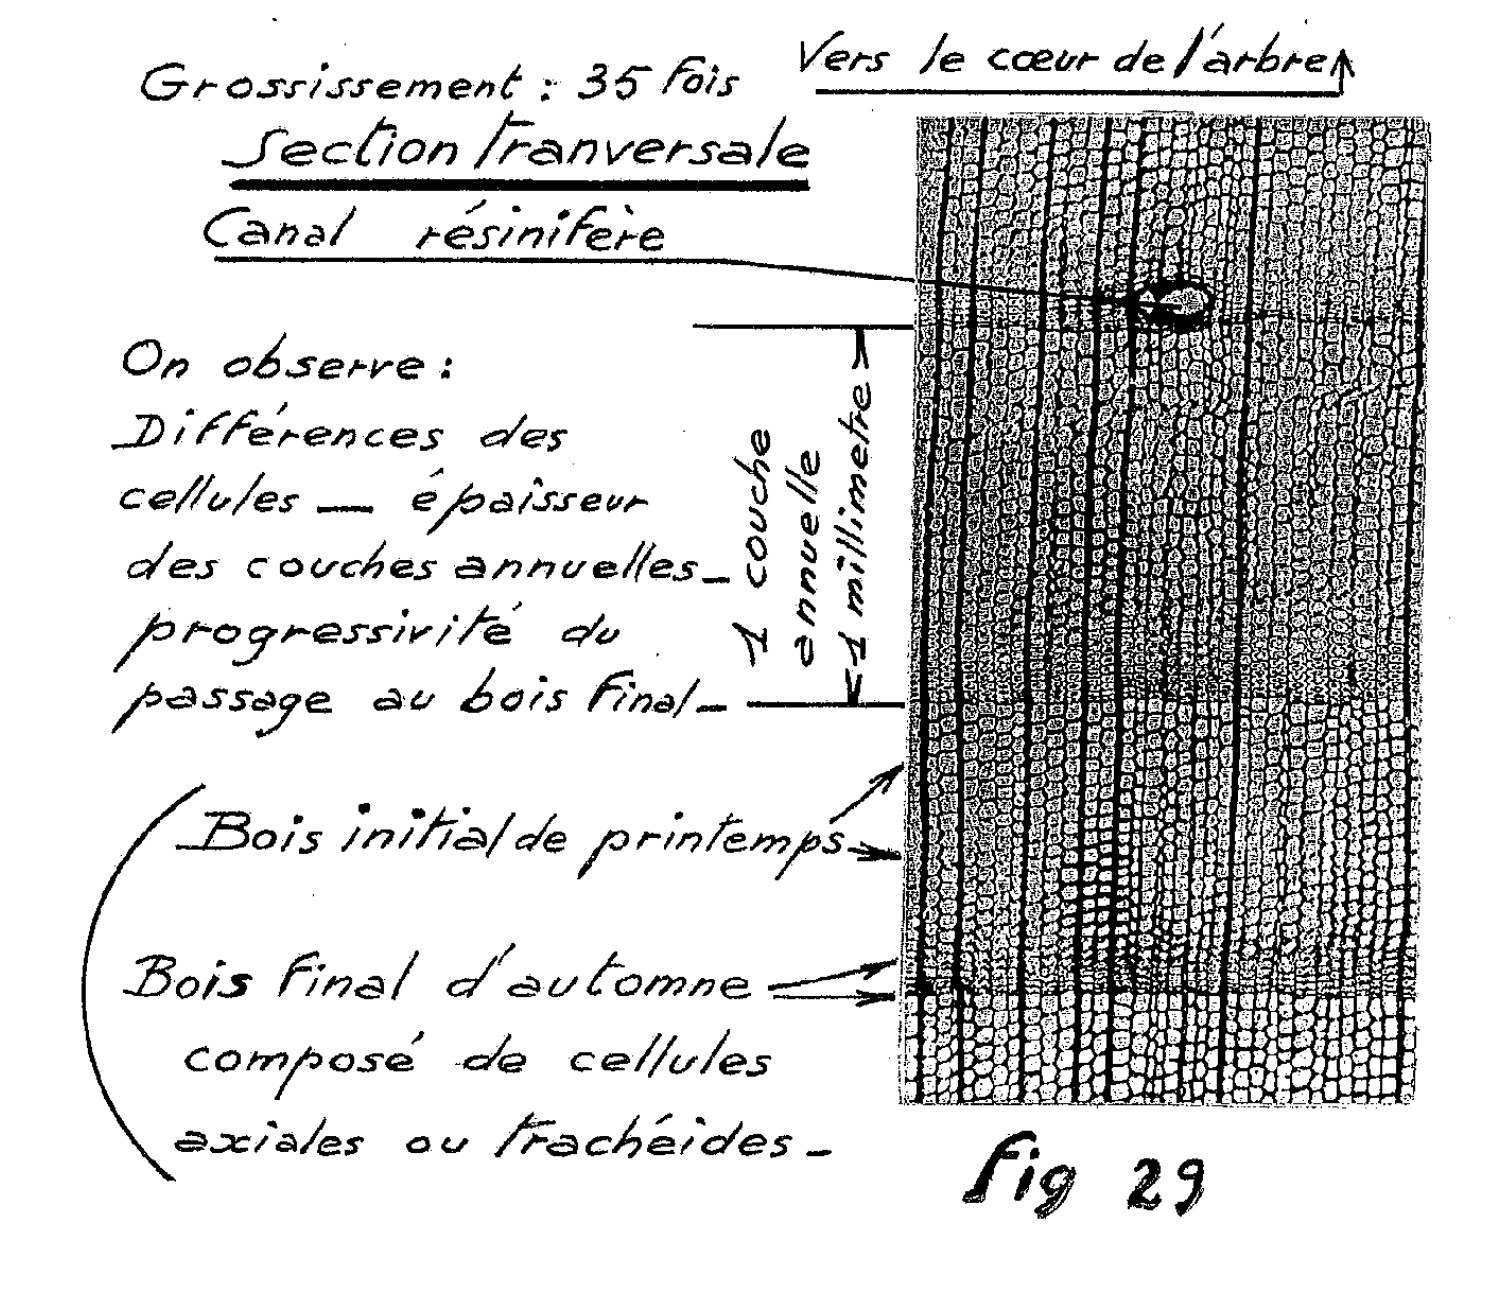 Grossissement : 35 fois
Vers le cœur de l'arbre
Section tranversale
Canal résinifère
On observe :
Différences des
cellules — épaisseur
des couches annuelles —
progressivité du
passage au bois final —
1 couche
annuelle
1 millimetre
Bois initial de printemps
Bois final d'automne
composé de cellules
axiales ou trachéides —
fig 29